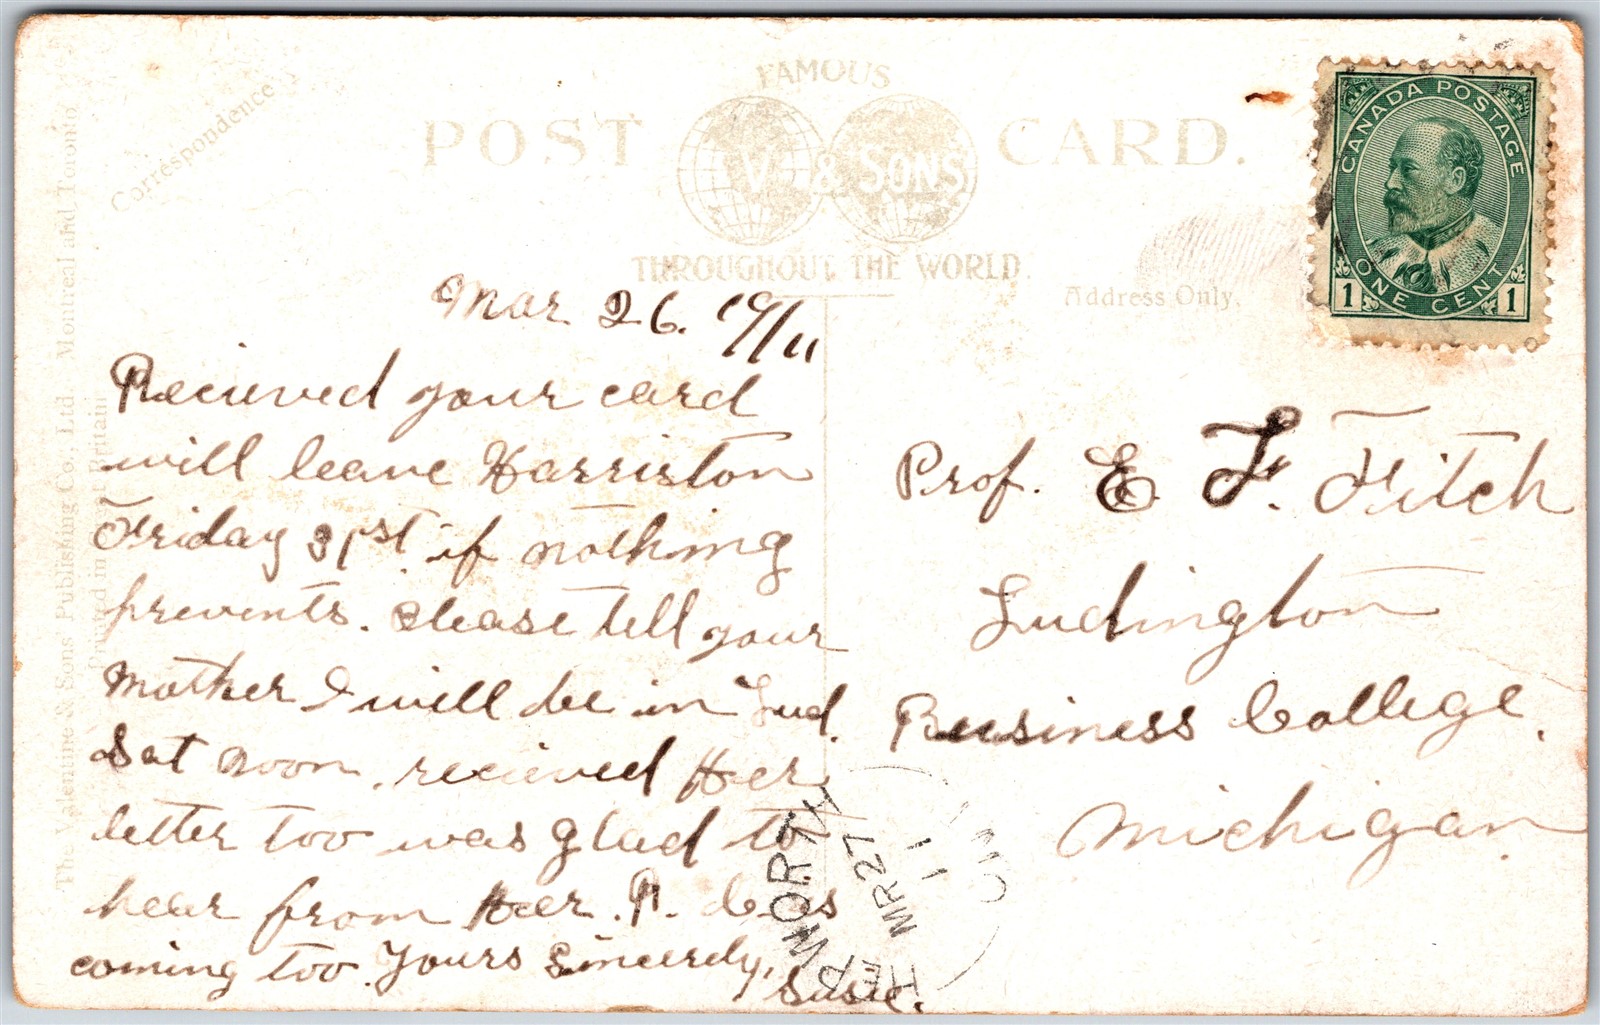 Correspondence
FAMOUS
POST CARD.
V. & SONS
THROUGHOUT THE WORLD.
Address Only.
The Valentine & Sons Publishing Co., Ltd. Montreal and Toronto
Printed in Great Britain
CANADA POSTAGE
ONE CENT
1 1
Mar 26. 19/11
Recieved your card
will leave Harriston
Friday 31st if nothing
prevents. Please tell your
Mother I will be in Lud.
Sat noon, recieved Her
letter too was glad to
hear from Her.
coming too. Yours Sincerely,
Susie.
Prof. E. F. Fitch
Ludington
Business College.
Michigan
HEPWORTH
MR 27
11